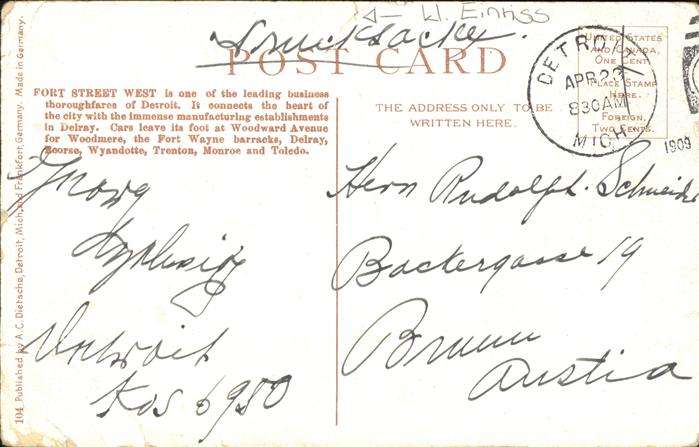 W. Einfiss
Drucksache.
POST CARD
DETROIT
APR 23
830AM
MICH
1909
UNITED STATES
AND CANADA,
ONE CENT
PLACE STAMP
HERE.
FOREIGN,
TWO CENTS.
FORT STREET WEST is one of the leading business
thoroughfares of Detroit. It connects the heart of
the city with the immense manufacturing establishments
in Delray. Cars leave its foot at Woodward Avenue
for Woodmere, the Fort Wayne barracks, Delray,
Ecorse, Wyandotte, Trenton, Monroe and Toledo.
THE ADDRESS ONLY TO BE
WRITTEN HERE.
Georg
Detroit
Box 6950
Herrn Rudolph Schneider
Backergasse 19
Brunn
Austia
104 Published by A. C. Dietsche, Detroit, Mich and Frankfort, Germany. Made in Germany.